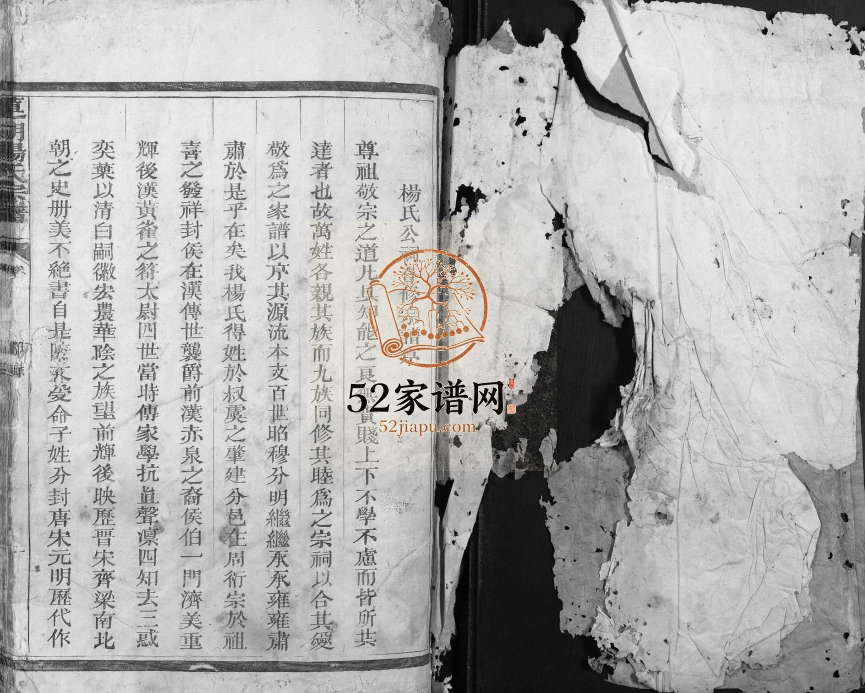 楊氏公祠
尊祖敬宗之道凡具知能之良貴賤上下不學不慮而皆所共
達者也故萬姓各親其族而九族同修其睦為之宗祠以合其愛
敬為之家譜以京其源流本支百世昭穆分明繼繼永永雍雍肅
肅於是乎在矣我楊氏得姓於叔虞之肇建分邑在周衍宗於祖
喜之發祥封侯在漢傳世襲爵前漢赤泉之裔侯伯一門濟美重
輝後漢黃雀之符太尉四世當時傳家學抗直聲凜四知去三惑
奕葉以清白嗣徽宏農華陰之族望前輝後映歷晉宋齊梁南北
朝之史册美不絕書自是隋
受命子姓分封唐宋元明歷代作
楊氏宗譜
52家谱网
52jiapu.com